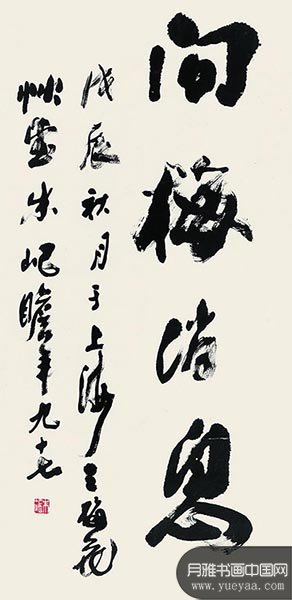 问梅消息
戊辰秋月于上海之梅花
草堂朱屺瞻年九十七
月雅书画中国网
www.yueyaa.com